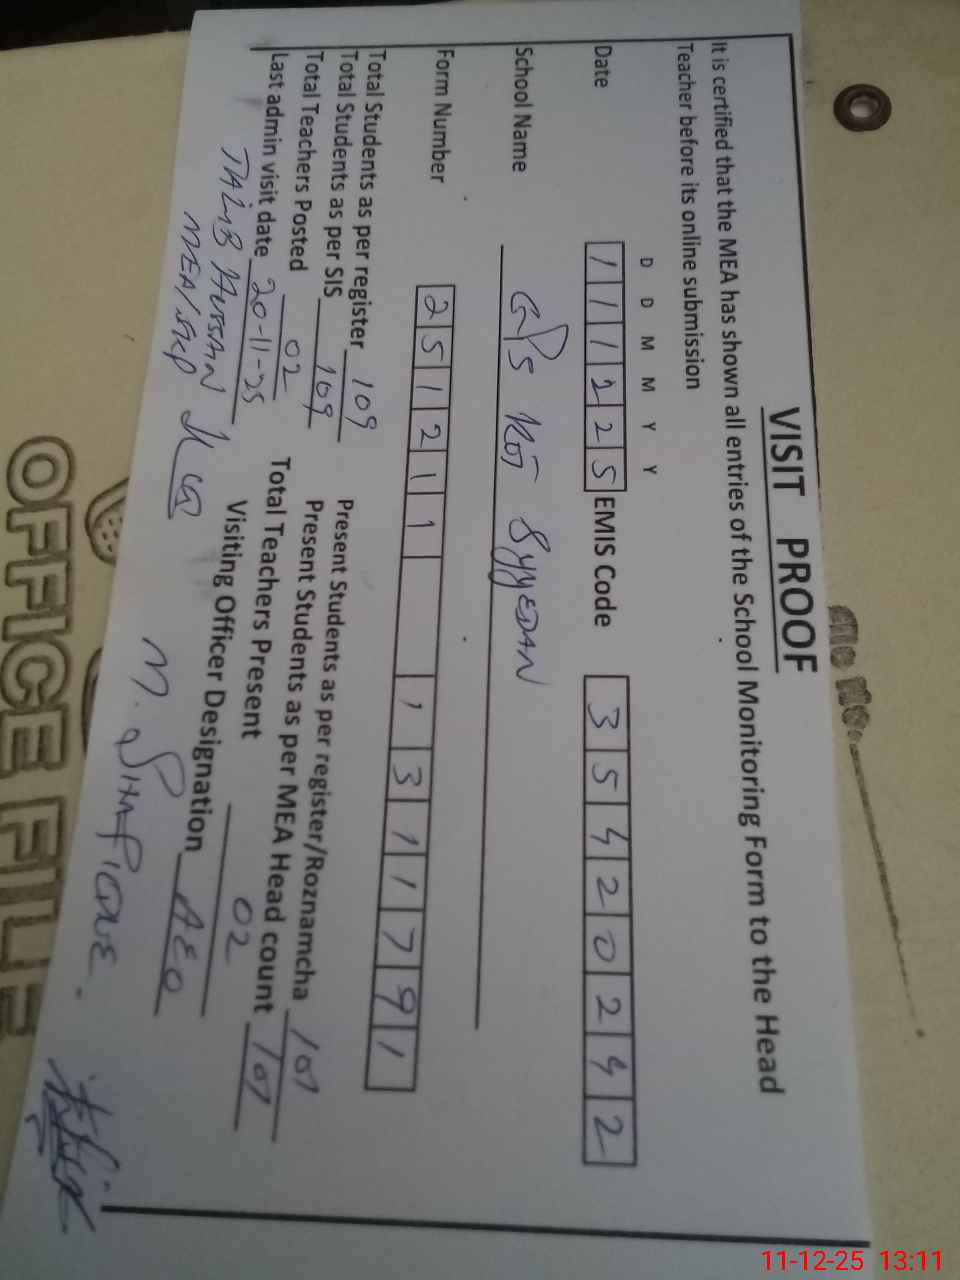 VISIT PROOF
It is certified that the MEA has shown all entries of the School Monitoring Form to the Head
Teacher before its online submission
D D M M Y Y
Date 1 1 1 2 2 5 EMIS Code 3 5 4 2 0 2 4 2
School Name GPS KOT SYYEDAN
Form Number 2 5 1 2 1 1 1 3 1 1 7 9 1
Total Students as per register 109 Present Students as per register/Roznamcha 107
Total Students as per SIS 109 Present Students as per MEA Head count 107
Total Teachers Posted 02 Total Teachers Present 02
Last admin visit date 20-11-25 Visiting Officer Designation AEO
TALIB HUSSAN M.
MEA/
OFFICE FILE
File No.
11-12-25 13:11